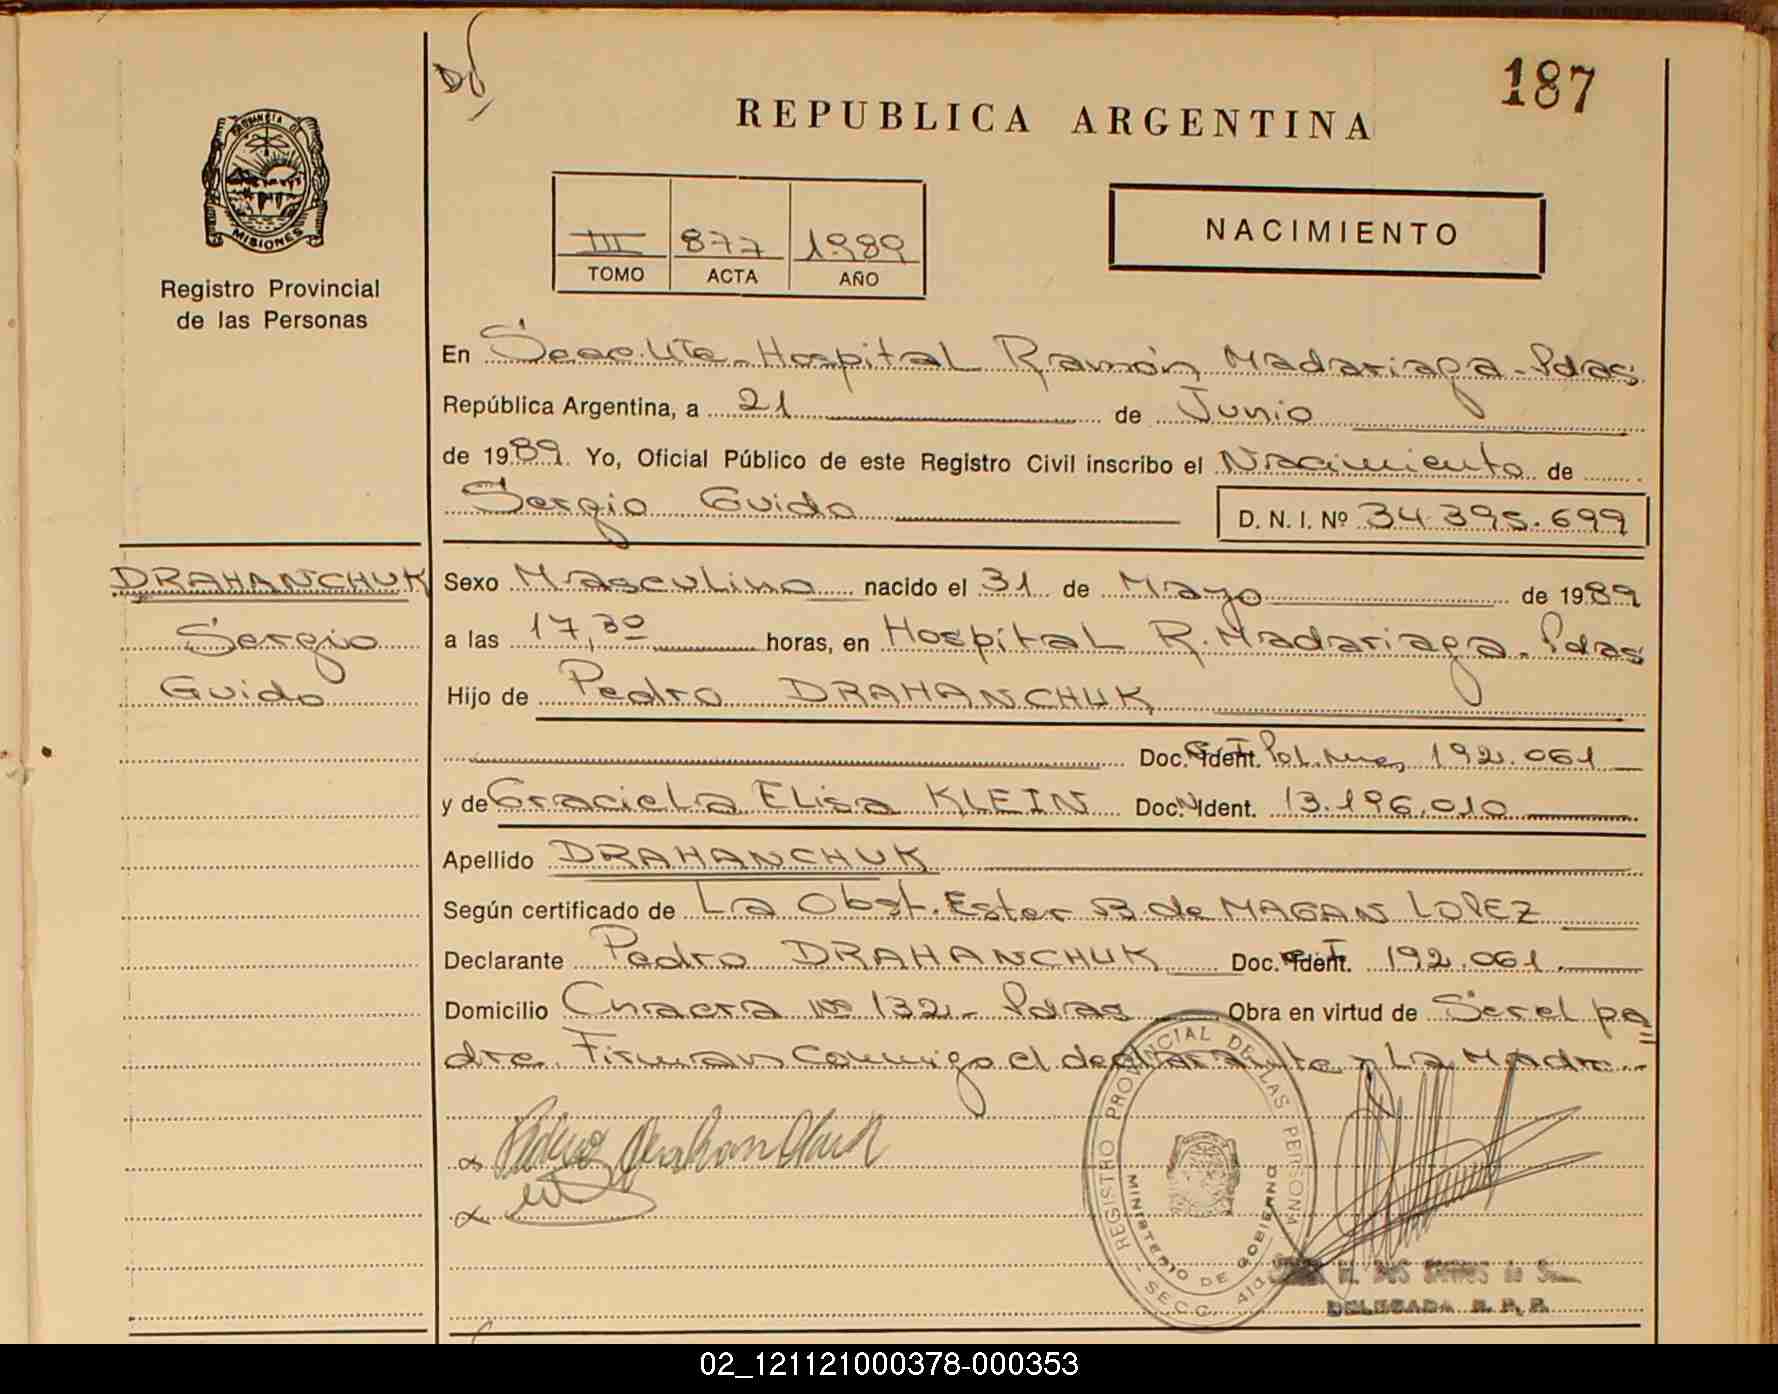 187
REPUBLICA ARGENTINA
PROVINCIA DE
MISIONES
Registro Provincial
de las Personas
III 877 1989
TOMO ACTA AÑO
NACIMIENTO
En Secc. Ute. Hospital Ramón Madariaga - Pdas
República Argentina, a 21 de Junio
de 1989. Yo, Oficial Público de este Registro Civil inscribo el Nacimiento de
Sergio Guido
D. N. I. Nº 34 395.699
DRAHANCHUK
Sergio
Guido
Sexo Masculino nacido el 31 de Mayo de 1989
a las 17,30 horas, en Hospital R. Madariaga - Pdas
Hijo de Pedro DRAHANCHUK
Doc. Ident. C.I. Pol. Mnes 192.061
y de Graciela Elisa KLEIN Doc. N Ident. 13.196.010
Apellido DRAHANCHUK
Según certificado de La Obst. Ester B. de MAGAN LOPEZ
Declarante Pedro DRAHANCHUK Doc. Ident. C.I. 192.061.
Domicilio Chacra Nº 132 - Pdas Obra en virtud de Ser el pa=
dre. Firman Conmigo el declarante y La Madre.-
Pedro Drahanchuk
REGISTRO PROVINCIAL DE LAS PERSONAS
MINISTERIO DE GOBIERNO
SECC. 4ta
DOS SANTOS de
DELEGADA R. P. P.
02_121121000378-000353